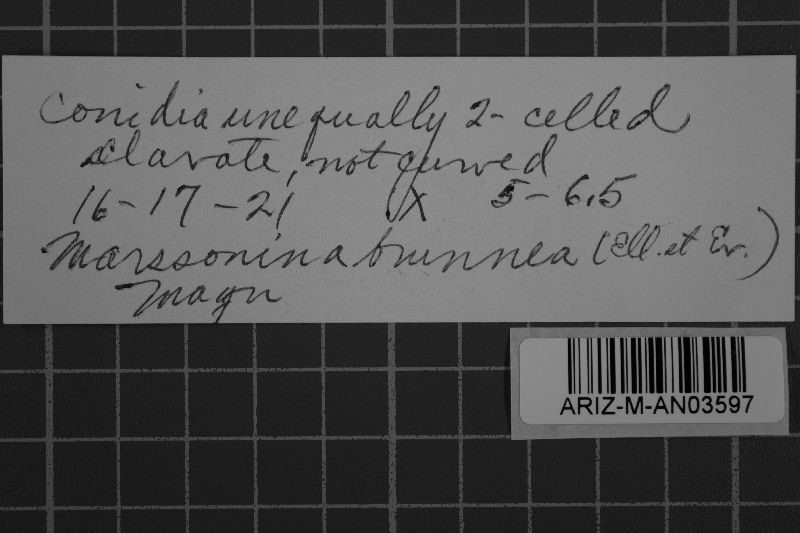 Conidia unequally 2-celled
clavate, not curved
16-17-21 X 5-6.5
Marssonina brunnea (Ell. et Ev.)
Magn
ARIZ-M-AN03597